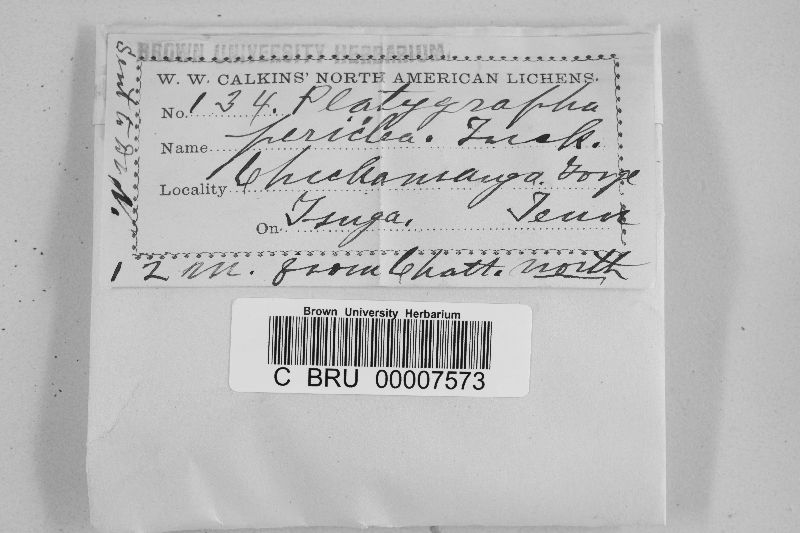 BROWN UNIVERSITY HERBARIUM
W. W. CALKINS' NORTH AMERICAN LICHENS.
No. 134. Platygrapha
Name periclea. Tuck.
Locality Chickamauga. Gorge
On Tsuga. Tenn
12 m. from Chatt. north
Brown University Herbarium
C BRU 00007573